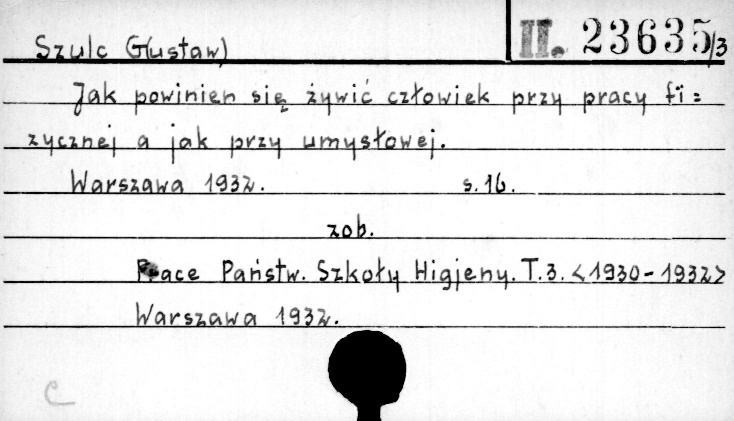 Szulc G(ustaw) II. 23635/3
Jak powinien się żywić człowiek przy pracy fi=
zycznej a jak przy umysłowej.
Warszawa 1932. s. 16.
zob.
Prace Państw. Szkoły Higjeny. T. 3. <1930-1932>
Warszawa 1932.
C